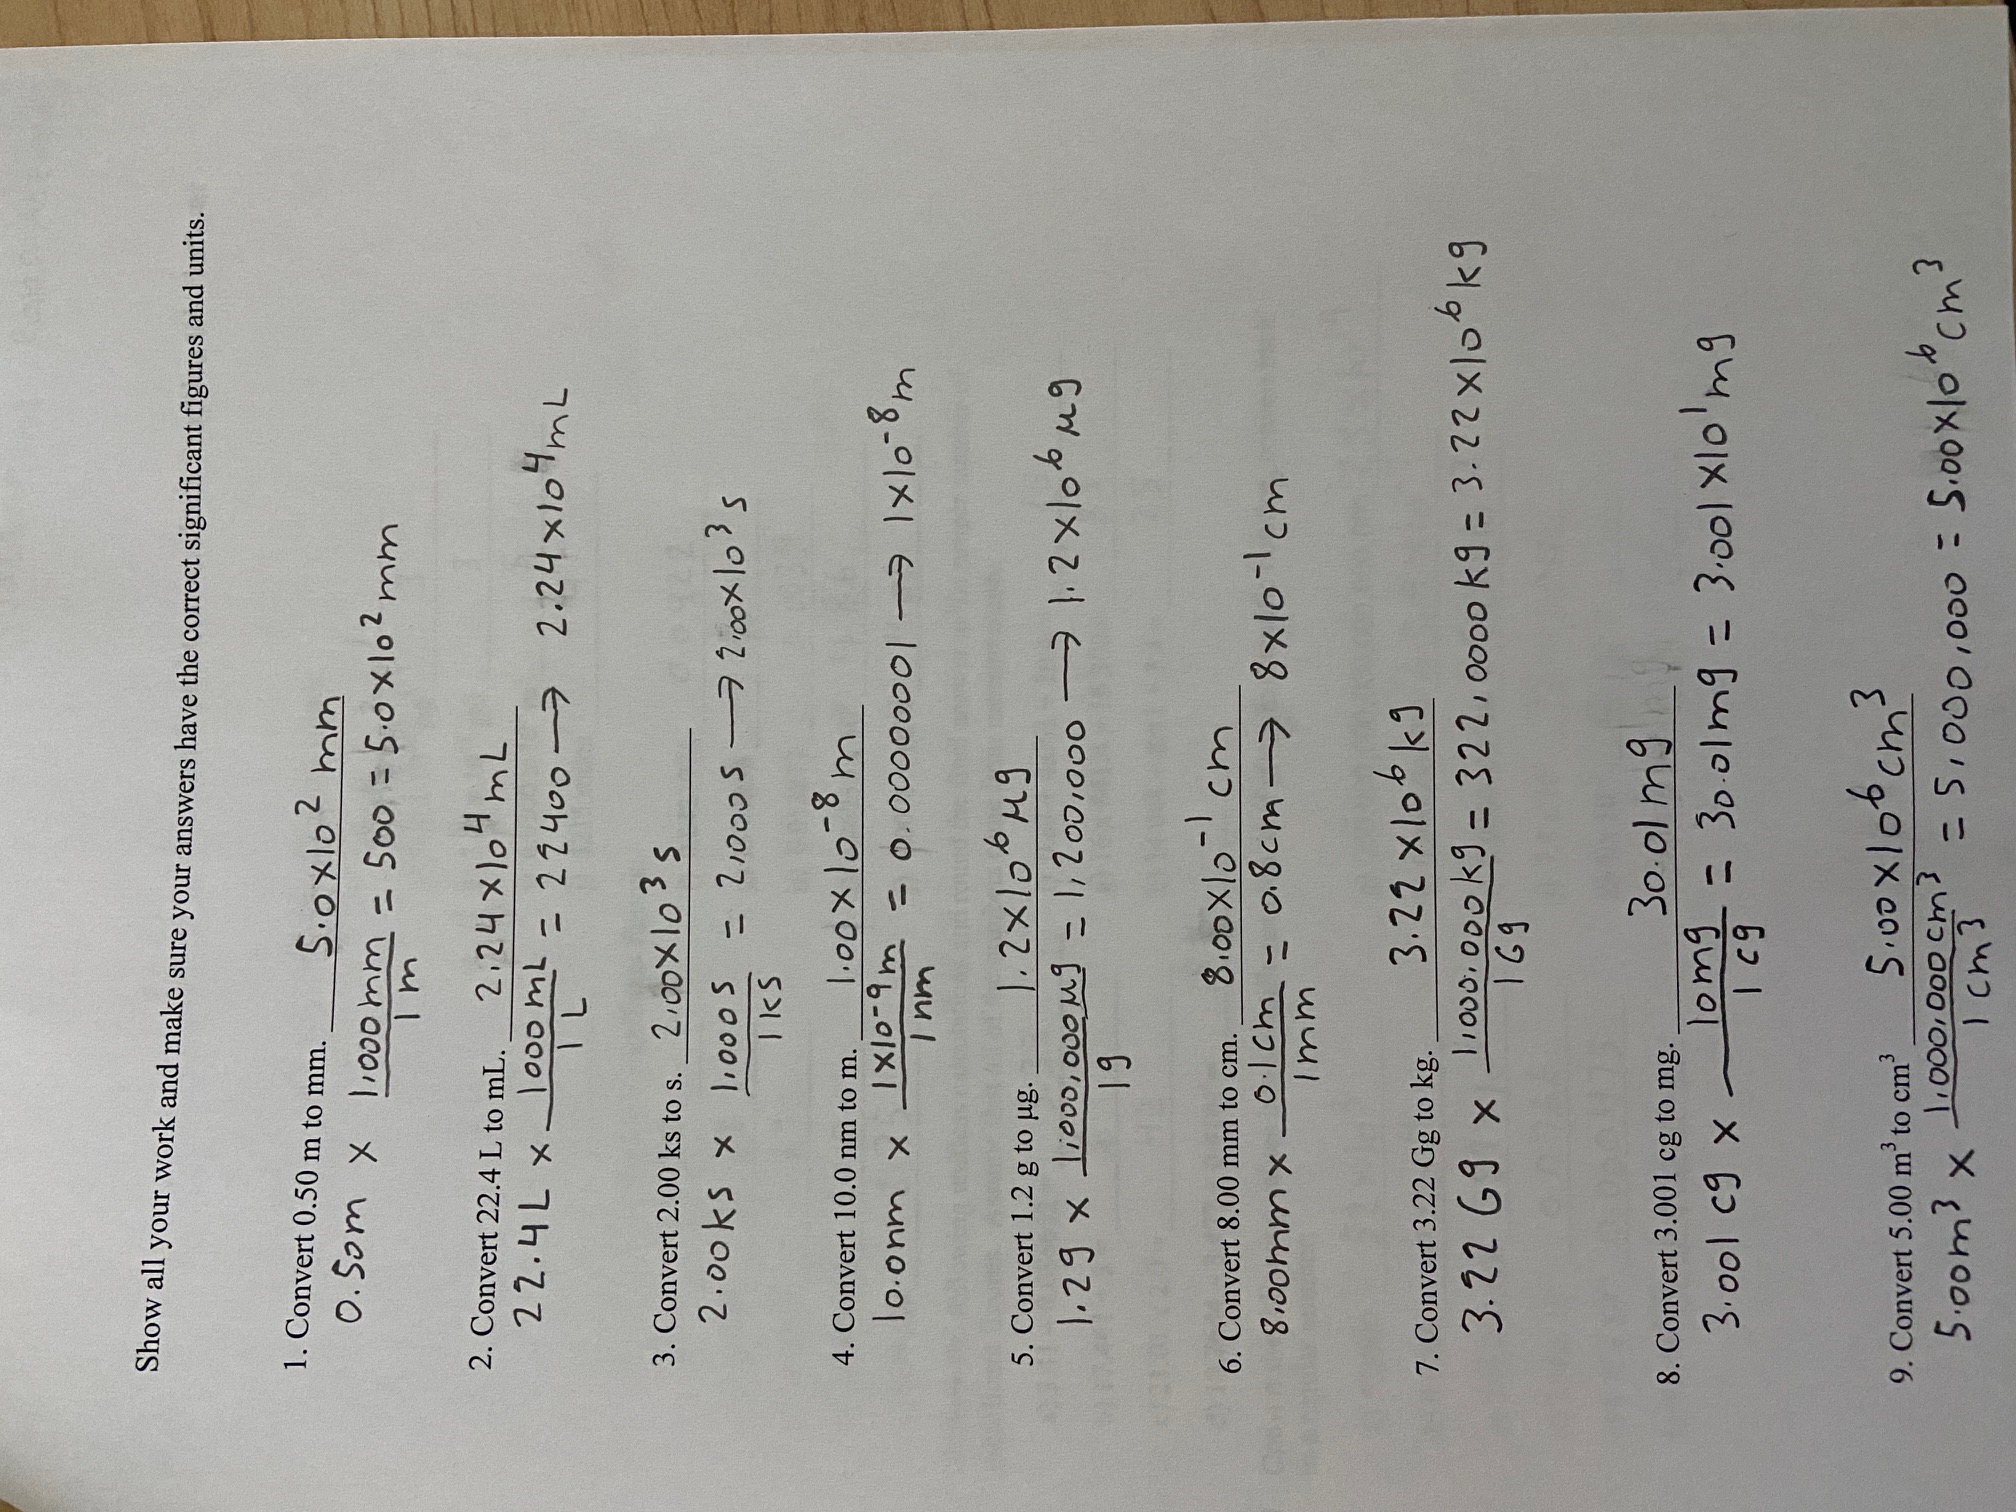 Show all your work and make sure your answers have the correct significant figures and units.
1. Convert 0.50 m to mm. 5.0 x 10² mm
0.50m x 1,000mm/1m = 500 = 5.0 x 10² mm
2. Convert 22.4 L to mL. 2.24 x 10⁴ mL
22.4L x 1000mL/1L = 22400 → 2.24 x 10⁴ mL
3. Convert 2.00 ks to s. 2.00 x 10³ s
2.00ks x 1,000s/1ks = 2,000s → 2.00 x 10³ s
4. Convert 10.0 nm to m. 1.00 x 10⁻⁸ m
10.0nm x 1x10⁻⁹m/1nm = 0.00000001 → 1x10⁻⁸ m
5. Convert 1.2 g to µg. 1.2 x 10⁶ µg
1.2g x 1,000,000µg/1g = 1,200,000 → 1.2x10⁶ µg
6. Convert 8.00 mm to cm. 8.00x10⁻¹ cm
8.00mm x 0.1cm/1mm = 0.8cm → 8x10⁻¹ cm
7. Convert 3.22 Gg to kg. 3.22 x 10⁶ kg
3.22 Gg x 1,000,000kg/1Gg = 322,0000kg = 3.22 x 10⁶ kg
8. Convert 3.001 cg to mg. 30.01 mg
3.001 cg x 10mg/1cg = 30.01mg = 3.001 x 10¹ mg
9. Convert 5.00 m³ to cm³ 5.00 x 10⁶ cm³
5.00m³ x 1,000,000cm³/1cm³ = 5,000,000 = 5.00x10⁶ cm³